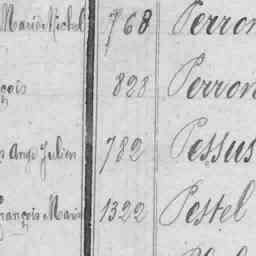 Marie Michel 768 Perron
çois 828 Perron
Ange Julien 782 Pessus
François Marie 1322 Pestel